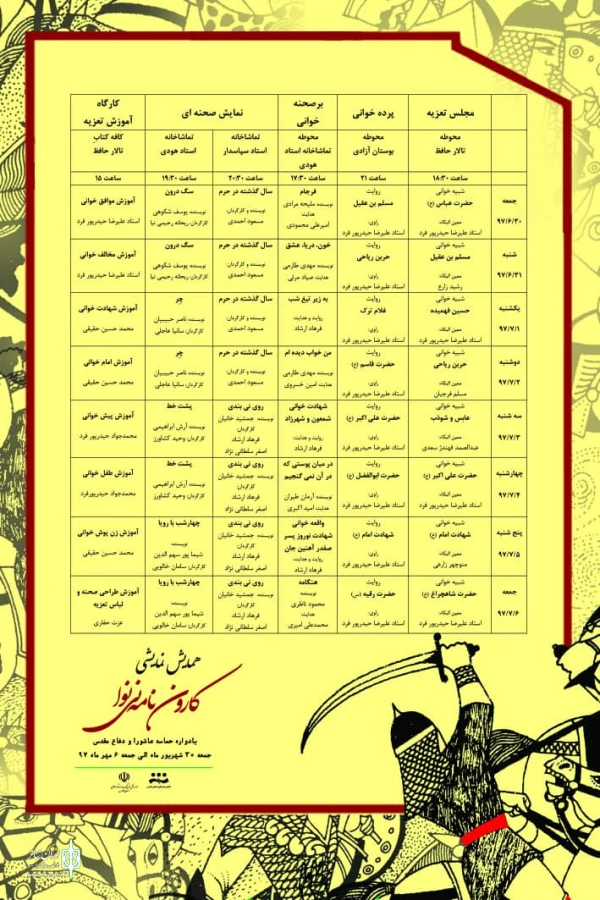 مجلس تعزیه
پرده خوانی
برصحنه
خوانی
نمایش صحنه ای
کارگاه
آموزش تعزیه
محوطه
تالار حافظ
محوطه
بوستان آزادی
محوطه
تماشاخانه استاد
هودی
تماشاخانه
استاد سپاسدار
تماشاخانه
استاد هودی
کافه کتاب
تالار حافظ
ساعت ۱۸:۳۰
ساعت ۲۱
ساعت ۱۷:۳۰
ساعت ۲۰:۳۰
ساعت ۱۹:۳۰
ساعت ۱۵
جمعه
۹۷/۶/۳۰
شبیه خوانی
حضرت عباس (ع)
معین البکاء:
استاد علیرضا حیدرپور فرد
روایت
مسلم بن عقیل
راوی:
استاد علیرضا حیدرپور فرد
فرجام
نویسنده ملیحه مرادی
هدایت
امیرعلی محمودی
سال گذشته در حرم
نویسنده و کارگردان:
مسعود احمدی
سگ درون
نویسنده: یوسف شکوهی
کارگردان: ریحانه رحیمی نیا
آموزش موافق خوانی
استاد علیرضا حیدرپور فرد
شنبه
۹۷/۶/۳۱
شبیه خوانی
مسلم بن عقیل
معین البکاء:
رشید زارع
روایت
حربن ریاحی
راوی:
استاد علیرضا حیدرپور فرد
خون، دریا، عشق
نویسنده: مهدی طارمی
هدایت صیاد مرلی
سال گذشته در حرم
نویسنده و کارگردان:
مسعود احمدی
سگ درون
نویسنده: یوسف شکوهی
کارگردان: ریحانه رحیمی نیا
آموزش مخالف خوانی
استاد علیرضا حیدرپور فرد
یکشنبه
۹۷/۷/۱
شبیه خوانی
حسین فهمیده
معین البکاء:
استاد علیرضا حیدرپور فرد
روایت
غلام ترک
راوی:
استاد علیرضا حیدرپور فرد
به زیر تیغ شب
روایت و هدایت:
فرهاد ارشاد
سال گذشته در حرم
نویسنده و کارگردان:
مسعود احمدی
چر
نویسنده: ناصر حبیبیان
کارگردان: سانیا عاجلی
آموزش شهادت خوانی
محمد حسین حقیقی
دوشنبه
۹۷/۷/۲
شبیه خوانی
حربن ریاحی
معین البکاء:
مسلم فرجیان
روایت
حضرت قاسم (ع)
راوی:
استاد علیرضا حیدرپور فرد
من خواب دیده ام
نویسنده: مهدی طارمی
هدایت امین خسروی
سال گذشته در حرم
نویسنده و کارگردان:
مسعود احمدی
چر
نویسنده: ناصر حبیبیان
کارگردان: سانیا عاجلی
آموزش امام خوانی
محمد حسین حقیقی
سه شنبه
۹۷/۷/۳
شبیه خوانی
عابس و شوذب
معین البکاء:
عبدالصمد فهندژ سعدی
روایت
حضرت علی اکبر (ع)
راوی:
استاد علیرضا حیدرپور فرد
شهادت خوانی
شمعون و شهرزاد
روایت و هدایت:
فرهاد ارشاد
روی نی بندی
نویسنده: جمشید خانیان
کارگردان
فرهاد ارشاد
اصغر سلطانی نژاد
پشت خط
نویسنده: آرش ابراهیمی
کارگردان: وحید کشاورز
آموزش پیش خوانی
محمدجواد حیدرپور فرد
چهارشنبه
۹۷/۷/۴
شبیه خوانی
حضرت علی اکبر (ع)
معین البکاء:
استاد علیرضا حیدرپور فرد
روایت
حضرت ابوالفضل (ع)
راوی:
استاد علیرضا حیدرپور فرد
در میان پوستی که
در آن نمی گنجیم
نویسنده آرمان طیران
هدایت امید اکبری
روی نی بندی
نویسنده: جمشید خانیان
کارگردان:
فرهاد ارشاد
اصغر سلطانی نژاد
پشت خط
نویسنده: آرش ابراهیمی
کارگردان: وحید کشاورز
آموزش طفل خوانی
محمدجواد حیدرپورفرد
پنج شنبه
۹۷/۷/۵
شبیه خوانی
شهادت امام (ع)
معین البکاء:
منوچهر زارعی
روایت
شهادت امام (ع)
راوی:
استاد علیرضا حیدرپور فرد
واقعه خوانی
شهادت نوروز پسر
صفدر آهنین جان
روایت و هدایت:
فرهاد ارشاد
روی نی بندی
نویسنده: جمشید خانیان
کارگردان:
فرهاد ارشاد
اصغر سلطانی نژاد
چهارشب با رویا
نویسنده:
شیما پور سهم الدین
کارگردان: سامان خالویی
آموزش زن پوش خوانی
محمد حسین حقیقی
جمعه
۹۷/۷/۶
شبیه خوانی
حضرت شاهچراغ (ع)
معین البکاء:
استاد علیرضا حیدرپور فرد
روایت
حضرت رقیه (س)
راوی:
استاد علیرضا حیدرپور فرد
هنگامه
نویسنده
محمود ناظری
هدایت
محمدعلی امیری
روی نی بندی
نویسنده: جمشید خانیان
کارگردان:
فرهاد ارشاد
اصغر سلطانی نژاد
چهارشب با رویا
نویسنده:
شیما پور سهم الدین
کارگردان: سامان خالویی
آموزش طراحی صحنه و
لباس تعزیه
عزت حفاری
همایش نمایشی
کارون نامه نی نوا
یادواره حماسه عاشورا و دفاع مقدس
جمعه ۳۰ شهریور ماه الی جمعه ۶ مهر ماه ۹۷